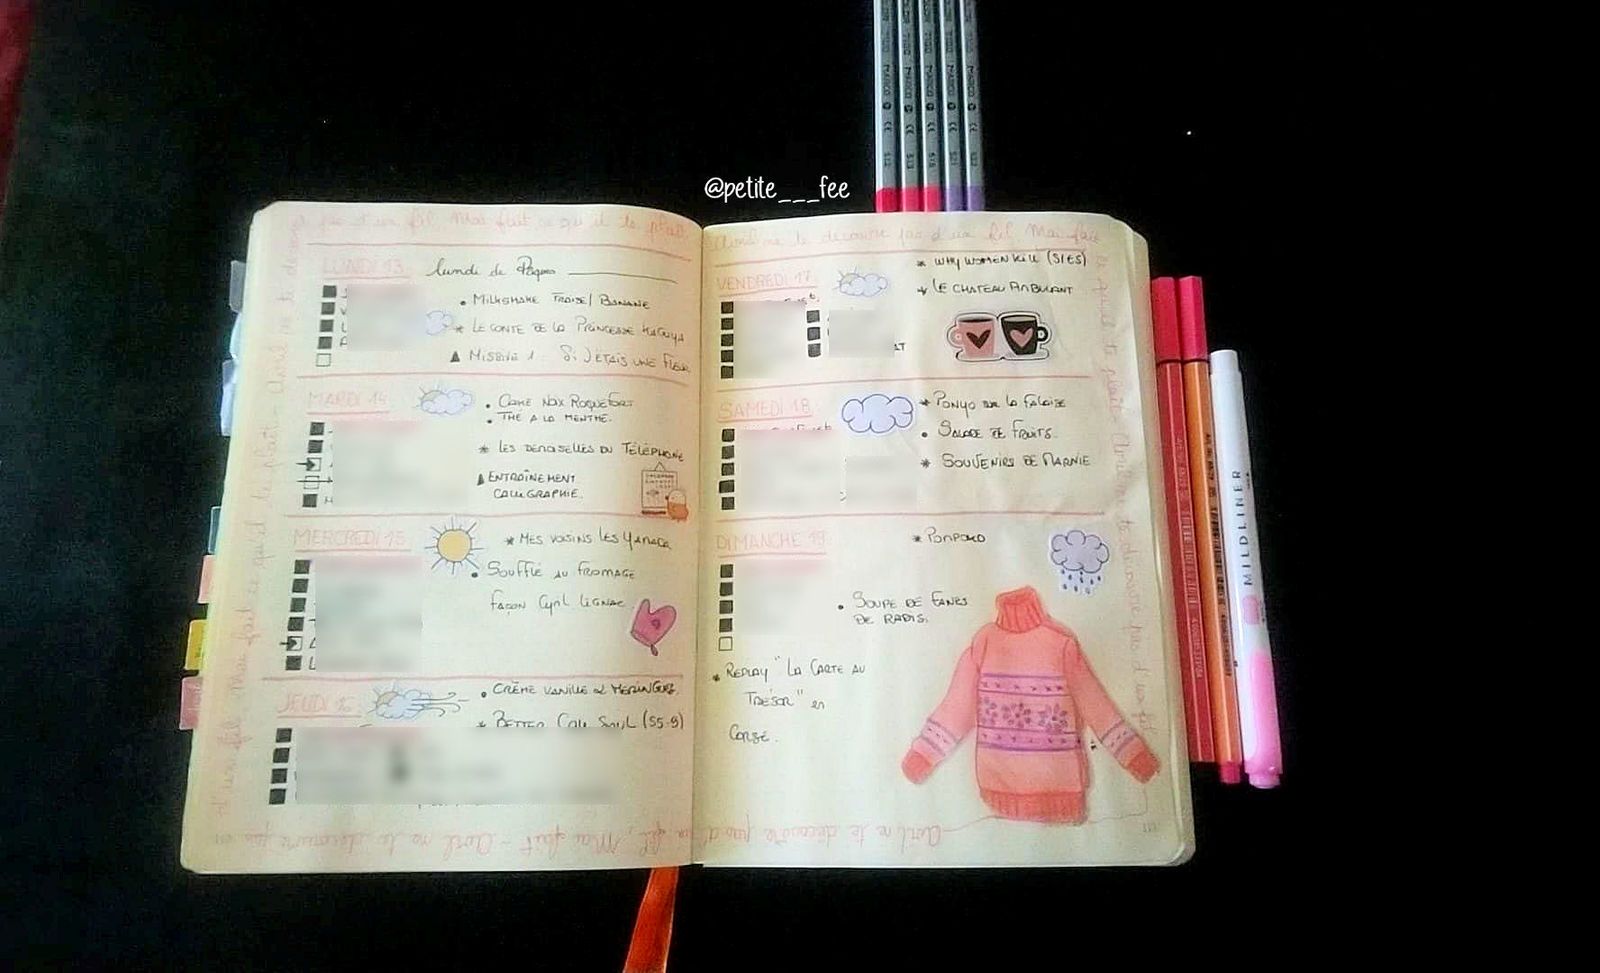 @petite___fee
d'un fil. Mai fait ce qu'il te plaît
LUNDI 13
lundi de Pâques
• MILKSHAKE FRAISE/ BANANE
* LE CONTE DE LA PRINCESSE KAGUYA
▲ MISSIVE 1 : SI J'ETAIS UNE FLEUR
MARDI 14
• CAKE NOIX ROQUEFORT
• THE A LA MENTHE.
* LES DEMOISELLES DU TÉLÉPHONE
▲ ENTRAÎNEMENT
CALLIGRAPHIE.
MERCREDI 15
* MES VOISINS LES YAMADA
• SOUFFLÉ AU FROMAGE
FAÇON Cyril LIGNAC.
JEUDI 16
• CRÈME VANILLE & MERINGUES.
* BETTER CALL SAUL (S5-9)
Avril ne te découvre pas d'un fil. Mai fait
VENDREDI 17
* WHY WOMEN KILL (S1E5)
* LE CHATEAU AMBULANT
SAMEDI 18
* PONYO SUR LA FALAISE
• SALADE DE FRUITS.
* SOUVENIRS DE MARNIE
DIMANCHE 19
* POMPOKO
• SOUPE DE FANES
DE RADIS.
* REPLAY "LA CARTE AU
TRÉSOR" en
CORSE.
Mai fait - Avril ne te découvre pas
Avril ne te découvre pas d'un fil
MARCO
MARCO
MARCO
MARCO
MARCO
MILDLINER